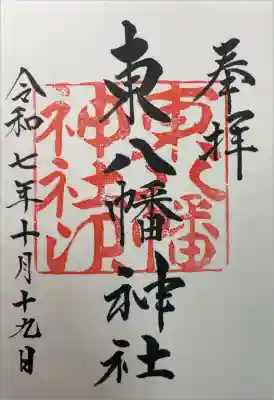 奉拝
東八幡神社
令和七年十月十九日
東八幡
神社印